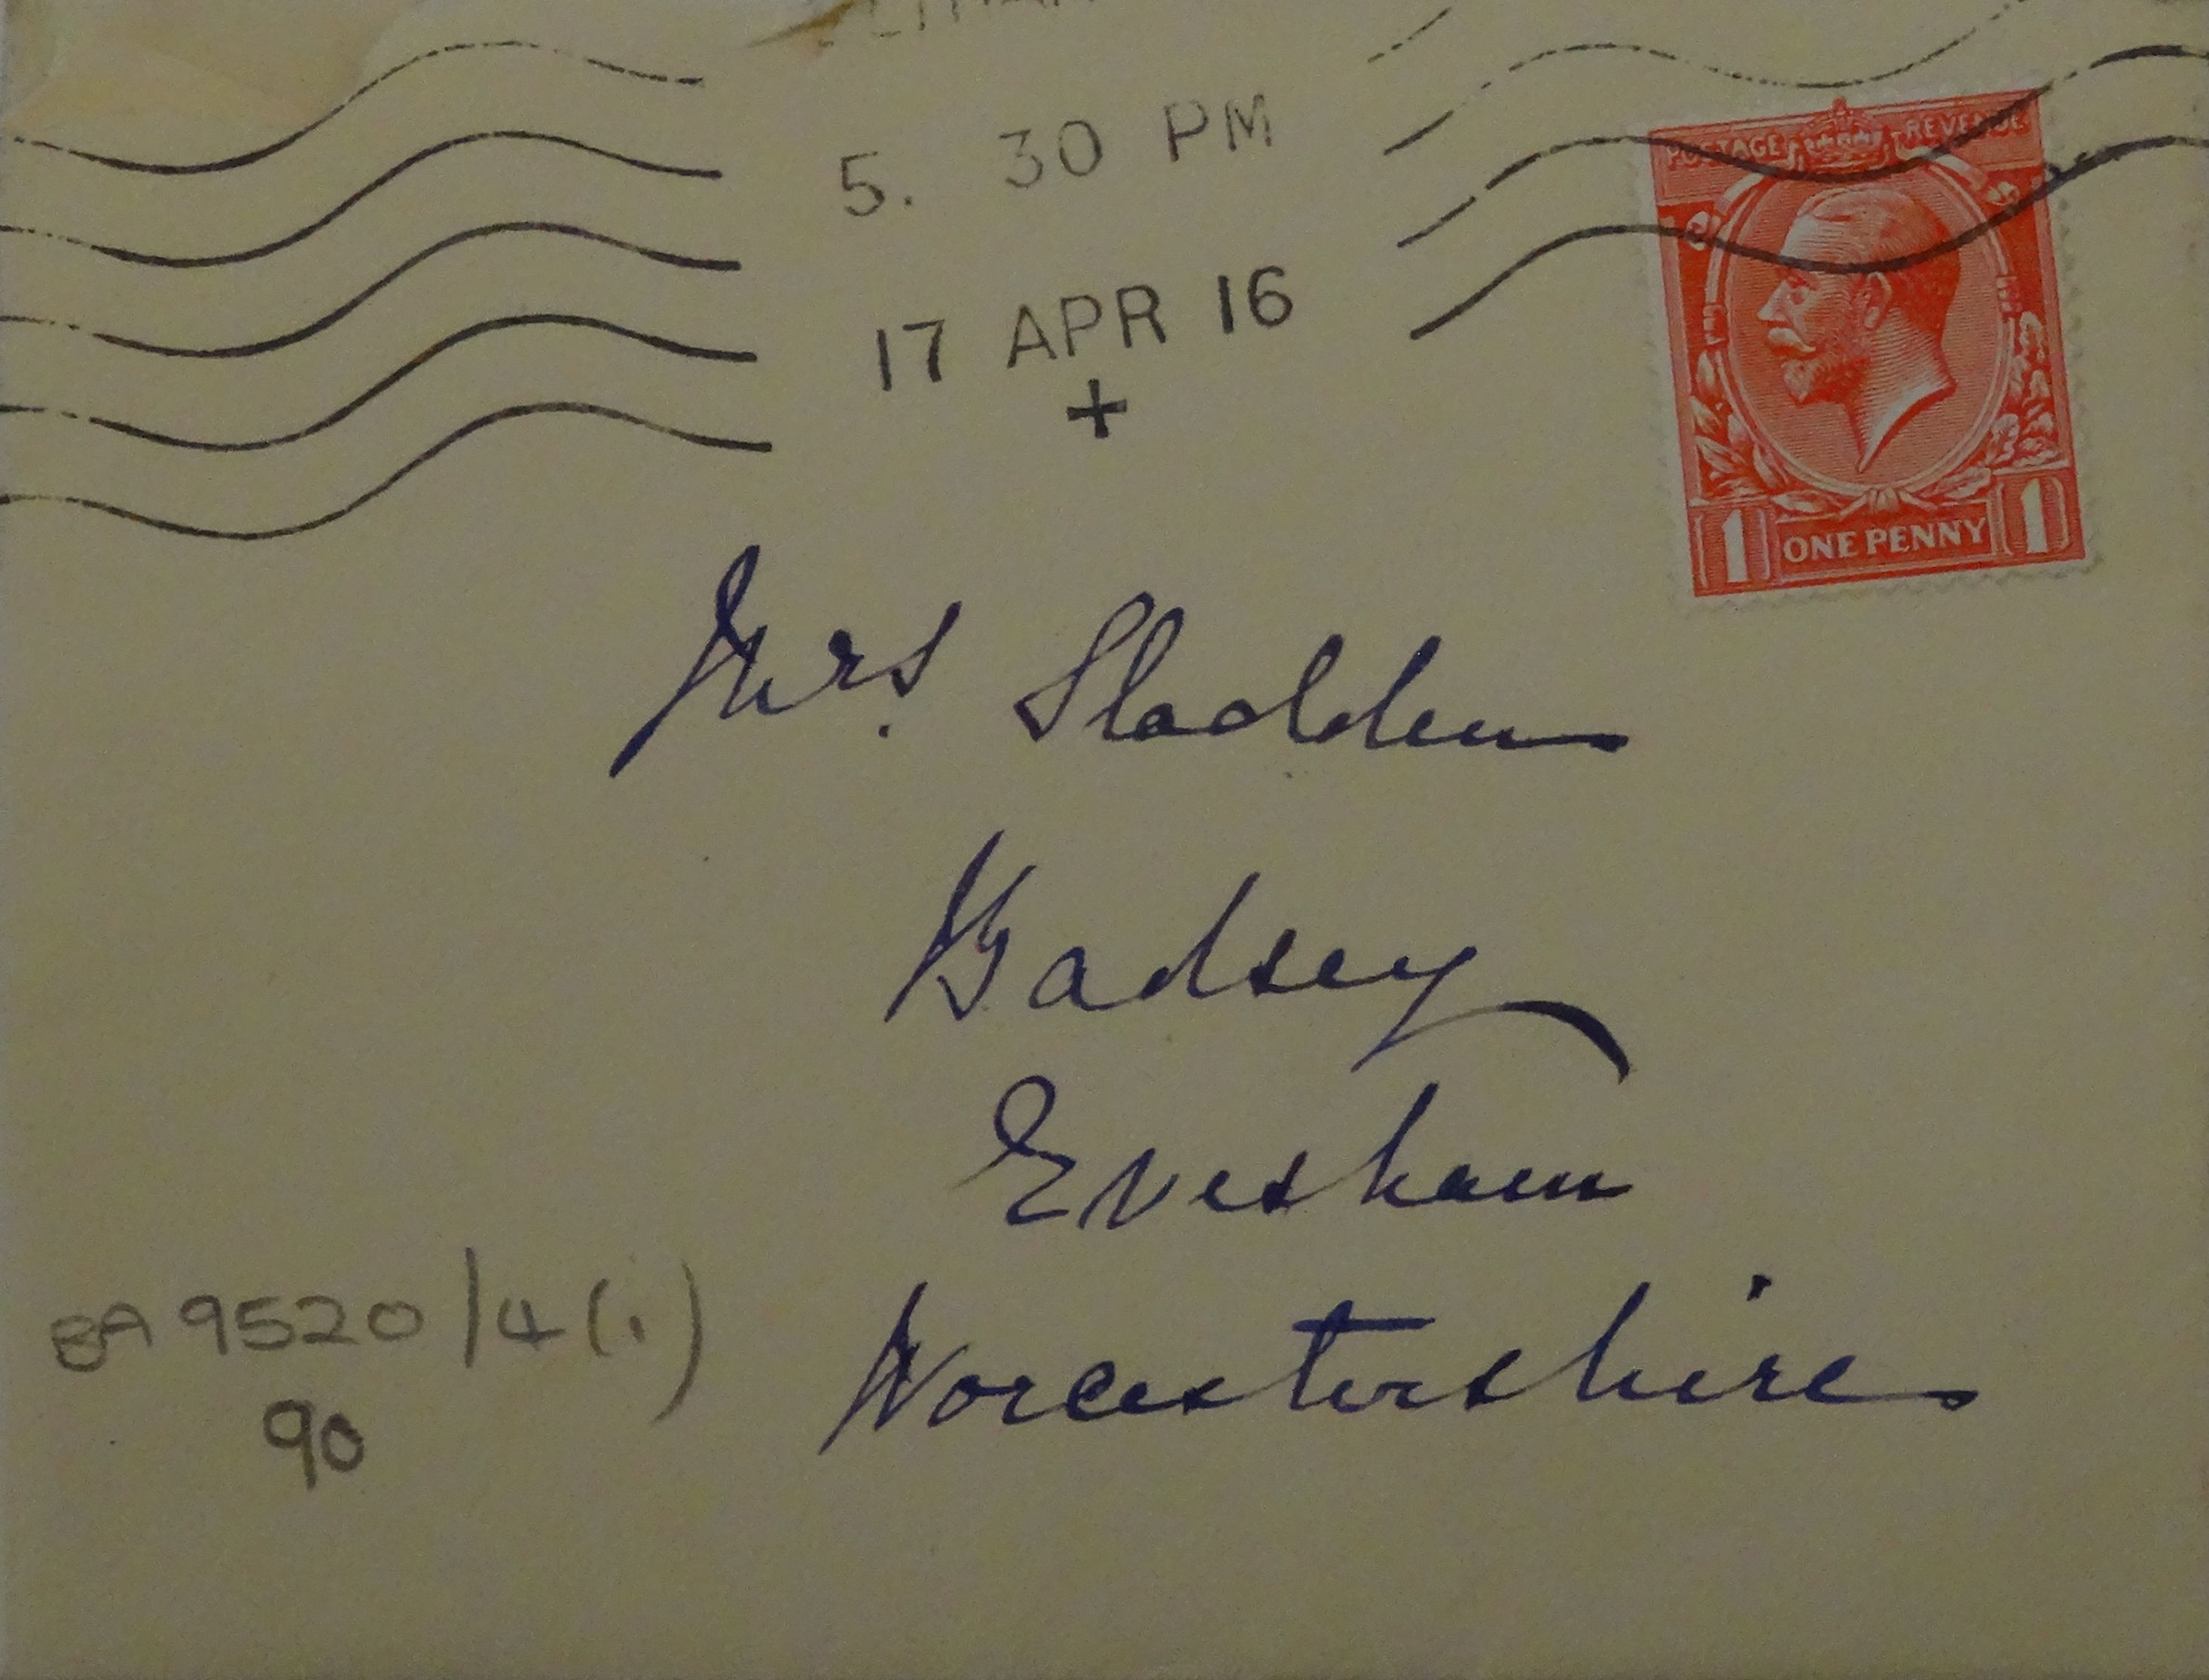 5. 30 PM
17 APR 16
+
POSTAGE REVENUE
1 ONE PENNY 1
Mrs. Sladden
Badsey
Evesham
Worcestershire
BA 9520/4(i)
90